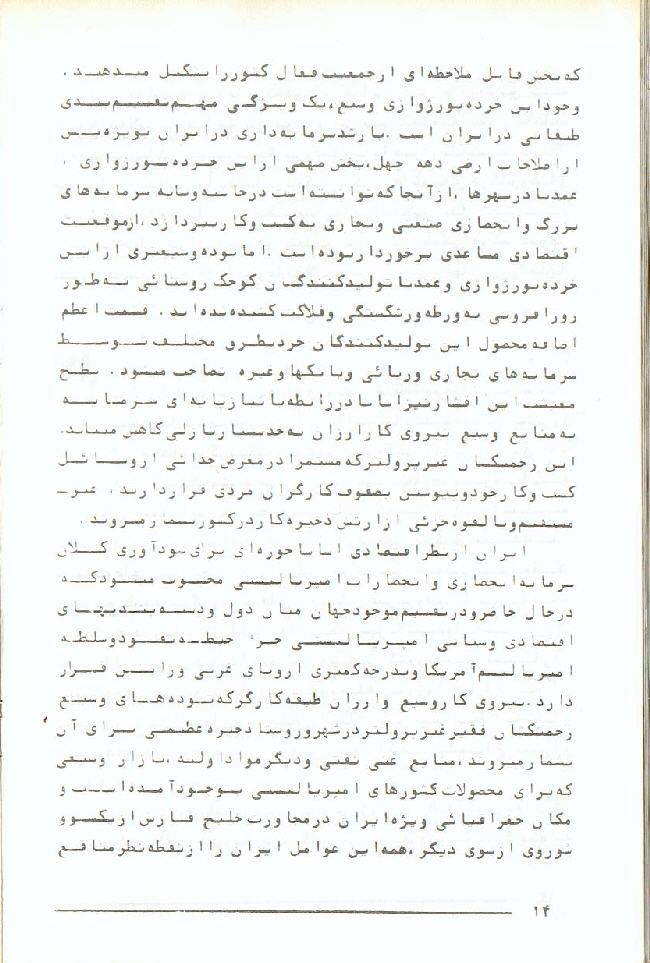 که بخش قابل ملاحظه‌ای از جمعیت فعال کشور را تشکیل میدهند .
وجود این خرده بورژوازی وسیع ، یک ویژگی مهم تقسیم بندی
طبقاتی در ایران است . با رشد سرمایه داری در ایران بویژه پس
از اصلاحات ارضی دهه چهل ، بخش مهمی از این خرده بورژوازی ،
عمدتا در شهرها ، از آنجا که توانسته است در حاشیه و سایه سرمایه های
بزرگ و انحصاری صنعتی و تجاری به کسب و کار بپردازد ، از موقعیت
اقتصادی مساعدی برخوردار بوده است . اما توده وسیعتری از این
خرده بورژوازی و عمدتا تولیدکنندگان کوچک روستائی به طور
روزافزونی به ورطه ورشکستگی و فلاکت کشیده شده اند . قسمت اعظم
اضافه محصول این تولیدکنندگان خرد بطرق مختلف توسط
سرمایه های تجاری و ربائی و بانکها و غیره تصاحب میشود . سطح
معیشت این اقشار نیز اساسا در رابطه با نیاز پایه ای سرمایه
به منابع وسیع نیروی کار ارزان به حد بسیار نازلی کاهش مییابد.
این زحمتکشان غیر پرولتر که مستمرا در معرض جدائی از وسائل
کسب و کار خود و پیوستن بصفوف کارگران مزدی قرار دارند ، غیر_
مستقیم و بالقوه جزئی از ارتش ذخیره کار در کشور بشمار میروند .
ایران از نظر اقتصادی اساسا حوزه ای برای سودآوری کلان
سرمایه انحصاری و انحصارات امپریالیستی محسوب میشود که
در حال حاضر و در تقسیم موجود جهان میان دول و دسته بندیهای
اقتصادی و سیاسی امپریالیستی جزء حیطه نفوذ و سلطه
امپریالیسم آمریکا و بدرجه کمتری اروپای غربی و ژاپن قرار
دارد . نیروی کار وسیع و ارزان طبقه کارگر که توده های وسیع
زحمتکشان فقیر غیر پرولتر در شهر و روستا ذخیره عظیمی برای آن
بشمار میروند ، منابع غنی نفتی و دیگر مواد اولیه ، بازار وسیعی
که برای محصولات کشورهای امپریالیستی بوجود آمده است و
مکان جغرافیائی ویژه ایران در مجاورت خلیج فارس از یکسو و
شوروی از سوی دیگر ، همه این عوامل ایران را از نقطه نظر منافع
۱۴